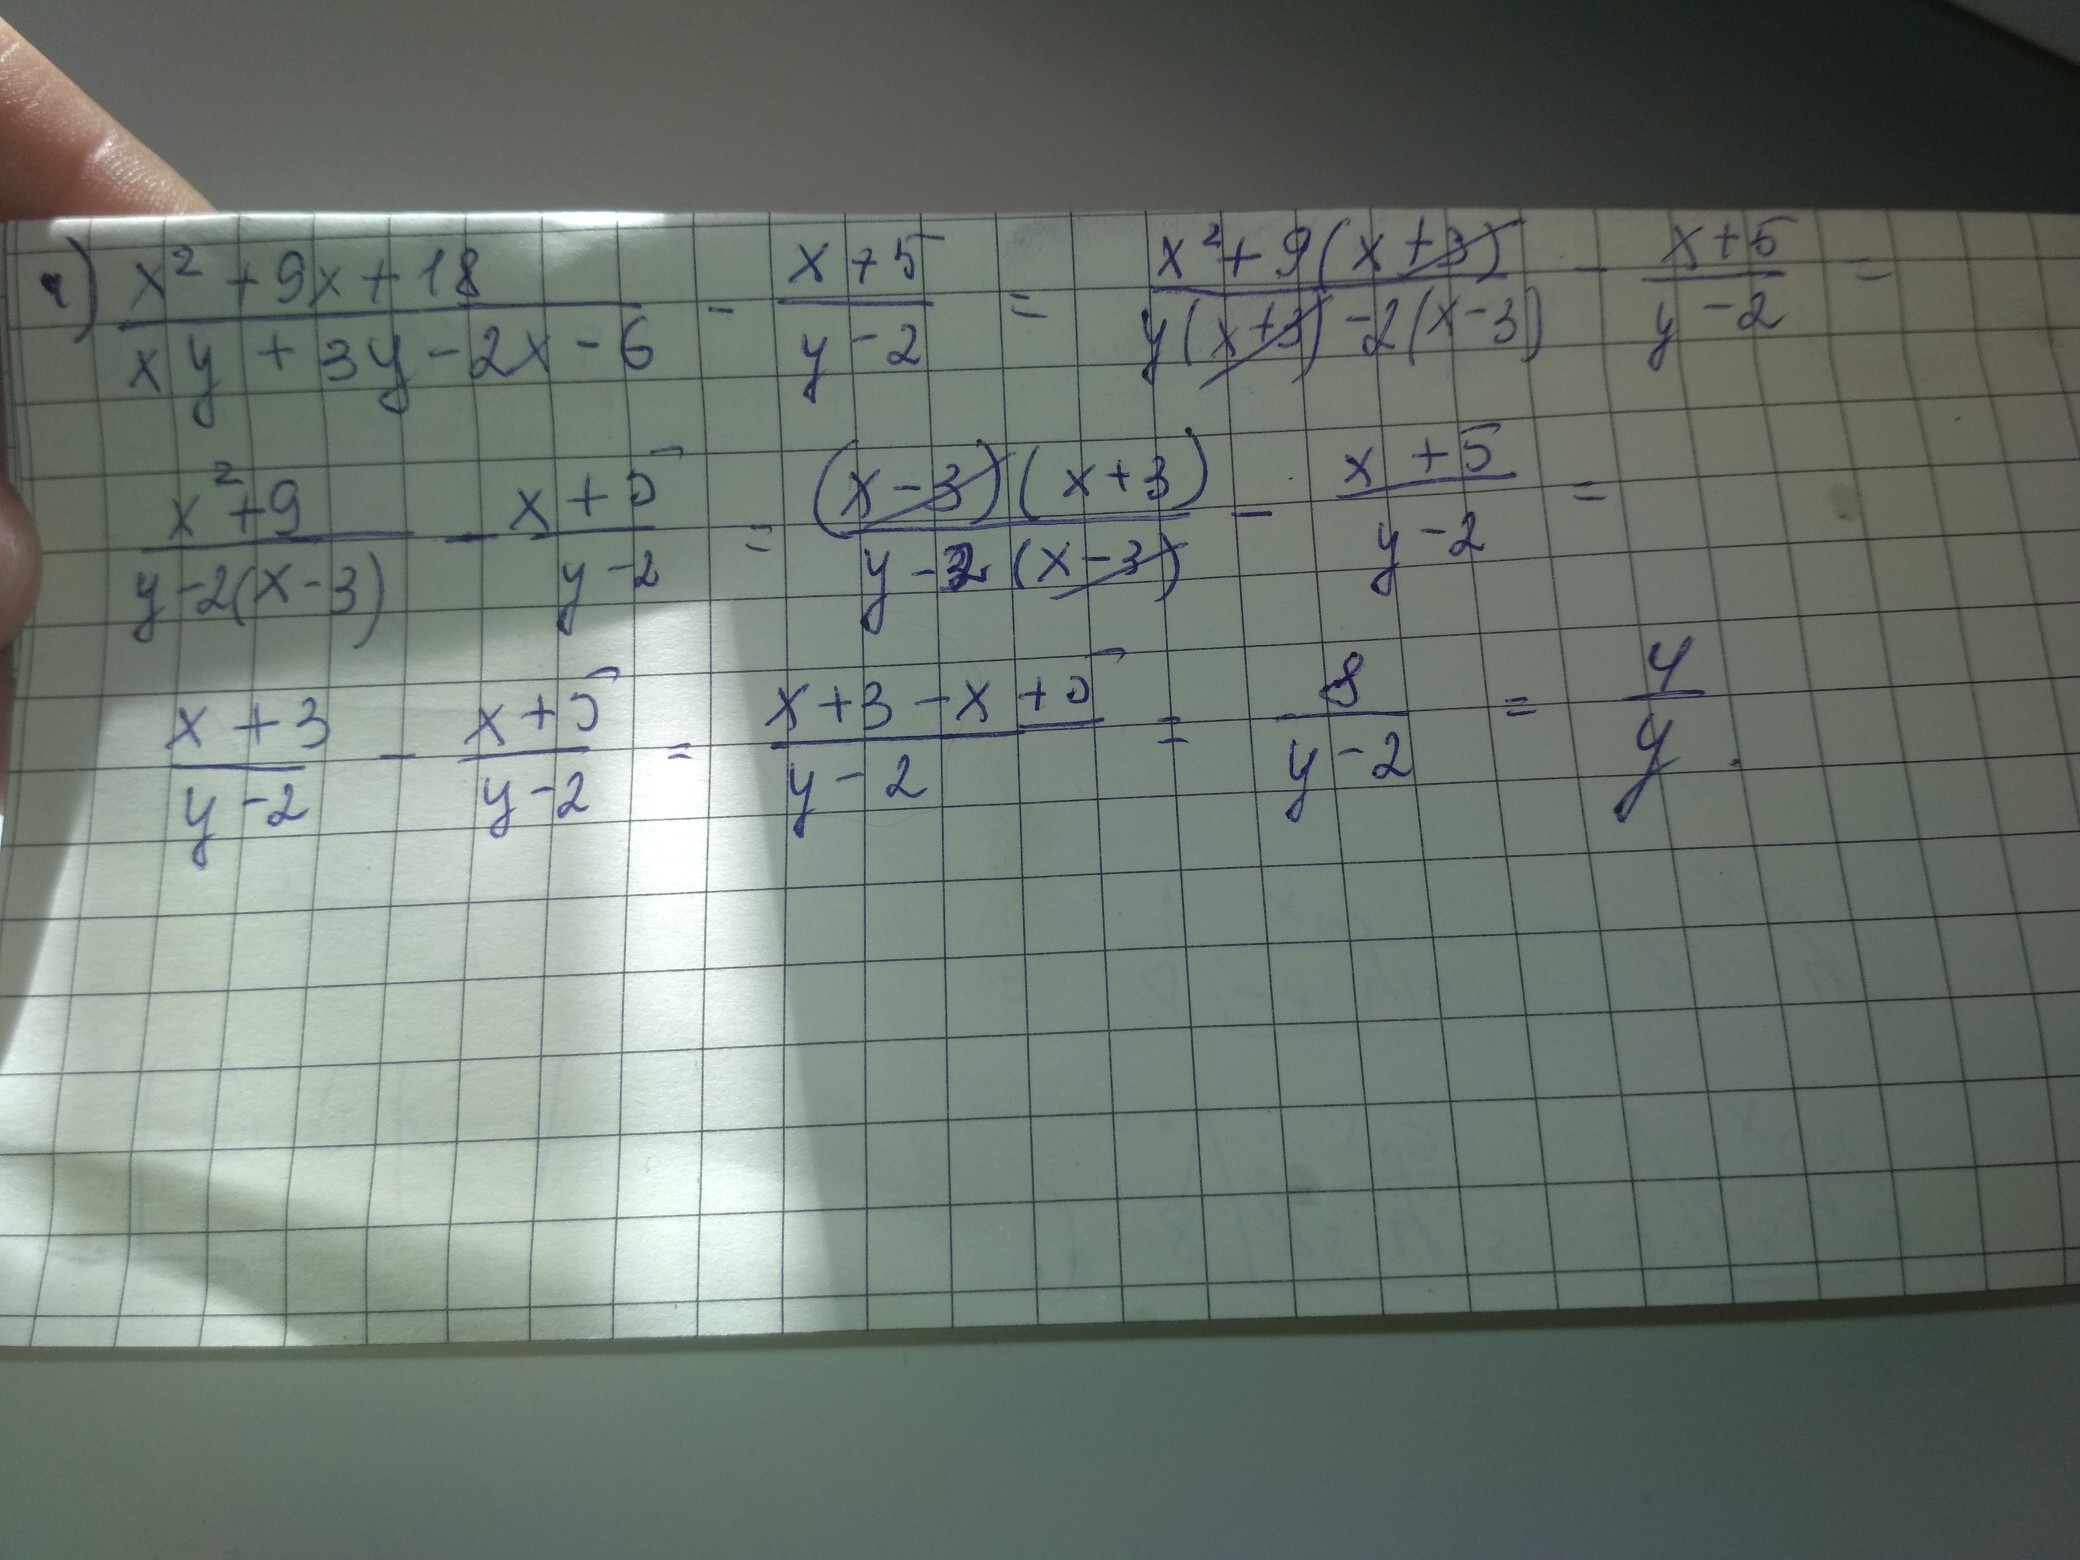 4) (x² + 9x + 18)/(xy + 3y - 2x - 6) - (x + 5)/(y - 2) = (x² + 9(x + 3))/(y(x + 3) - 2(x - 3)) - (x + 5)/(y - 2) =
(x² + 9)/(y - 2(x - 3)) - (x + 5)/(y - 2) = ((x - 3)(x + 3))/(y - 2(x - 3)) - (x + 5)/(y - 2) =
(x + 3)/(y - 2) - (x + 5)/(y - 2) = (x + 3 - x + 5)/(y - 2) = 8/(y - 2) = 4/y.